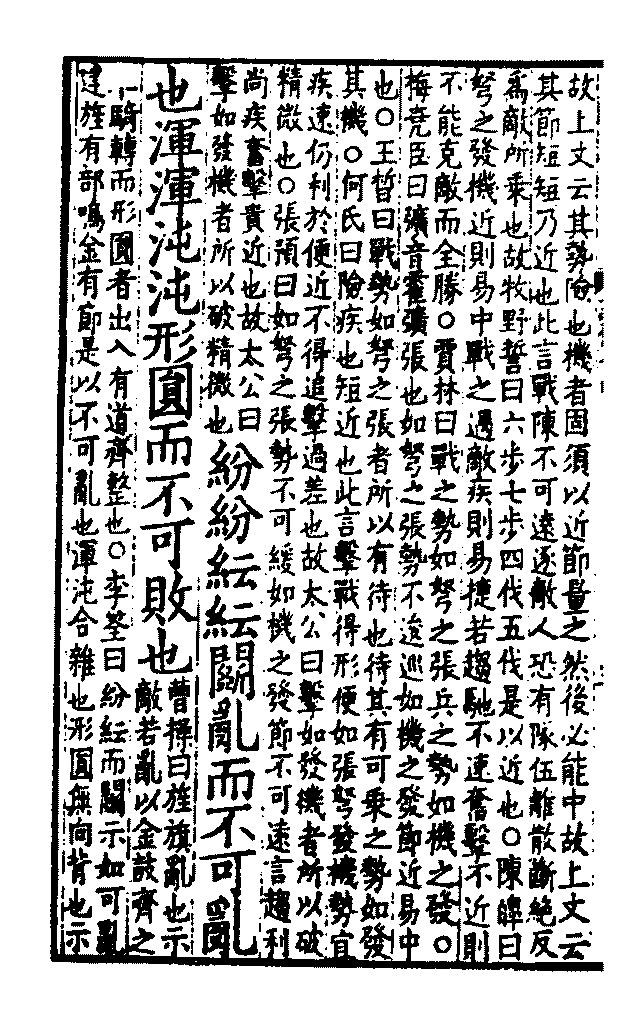 故上文云其勢險也機者固須以近節量之然後必能中故上文云
其節短短乃近也此言戰陳不可遠逐敵人恐有隊伍離散斷絕反
爲敵所乘也故牧野誓曰六步七步四伐五伐是以近也○陳皥曰
弩之發機近則易中戰之遇敵疾則易捷若趨馳不速奮擊不近則
不能克敵而全勝○賈林曰戰之勢如弩之張兵之勢如機之發○
梅堯臣曰彍音霍彍張也如弩之張勢不逡巡如機之發節近易中
也○王晳曰戰勢如弩之張者所以有待也待其有可乘之勢如發
其機○何氏曰險疾也短近也此言擊戰得形便如張弩發機勢宜
疾速仍利於便近不得追擊過差也故太公曰擊如發機者所以破
精微也○張預曰如弩之張勢不可緩如機之發節不可遠言趨利
尚疾奮擊貴近也故太公曰
擊如發機者所以破精微也
紛紛紜紜鬬亂而不可亂
也渾渾沌沌形圓而不可敗也
曹操曰旌旗亂也示
敵若亂以金鼓齊之
騎轉而形圓者出入有道齊整也○李筌曰紛紜而鬬示如可亂
建旌有部鳴金有節是以不可亂也渾沌合雜也形圓無向背也示